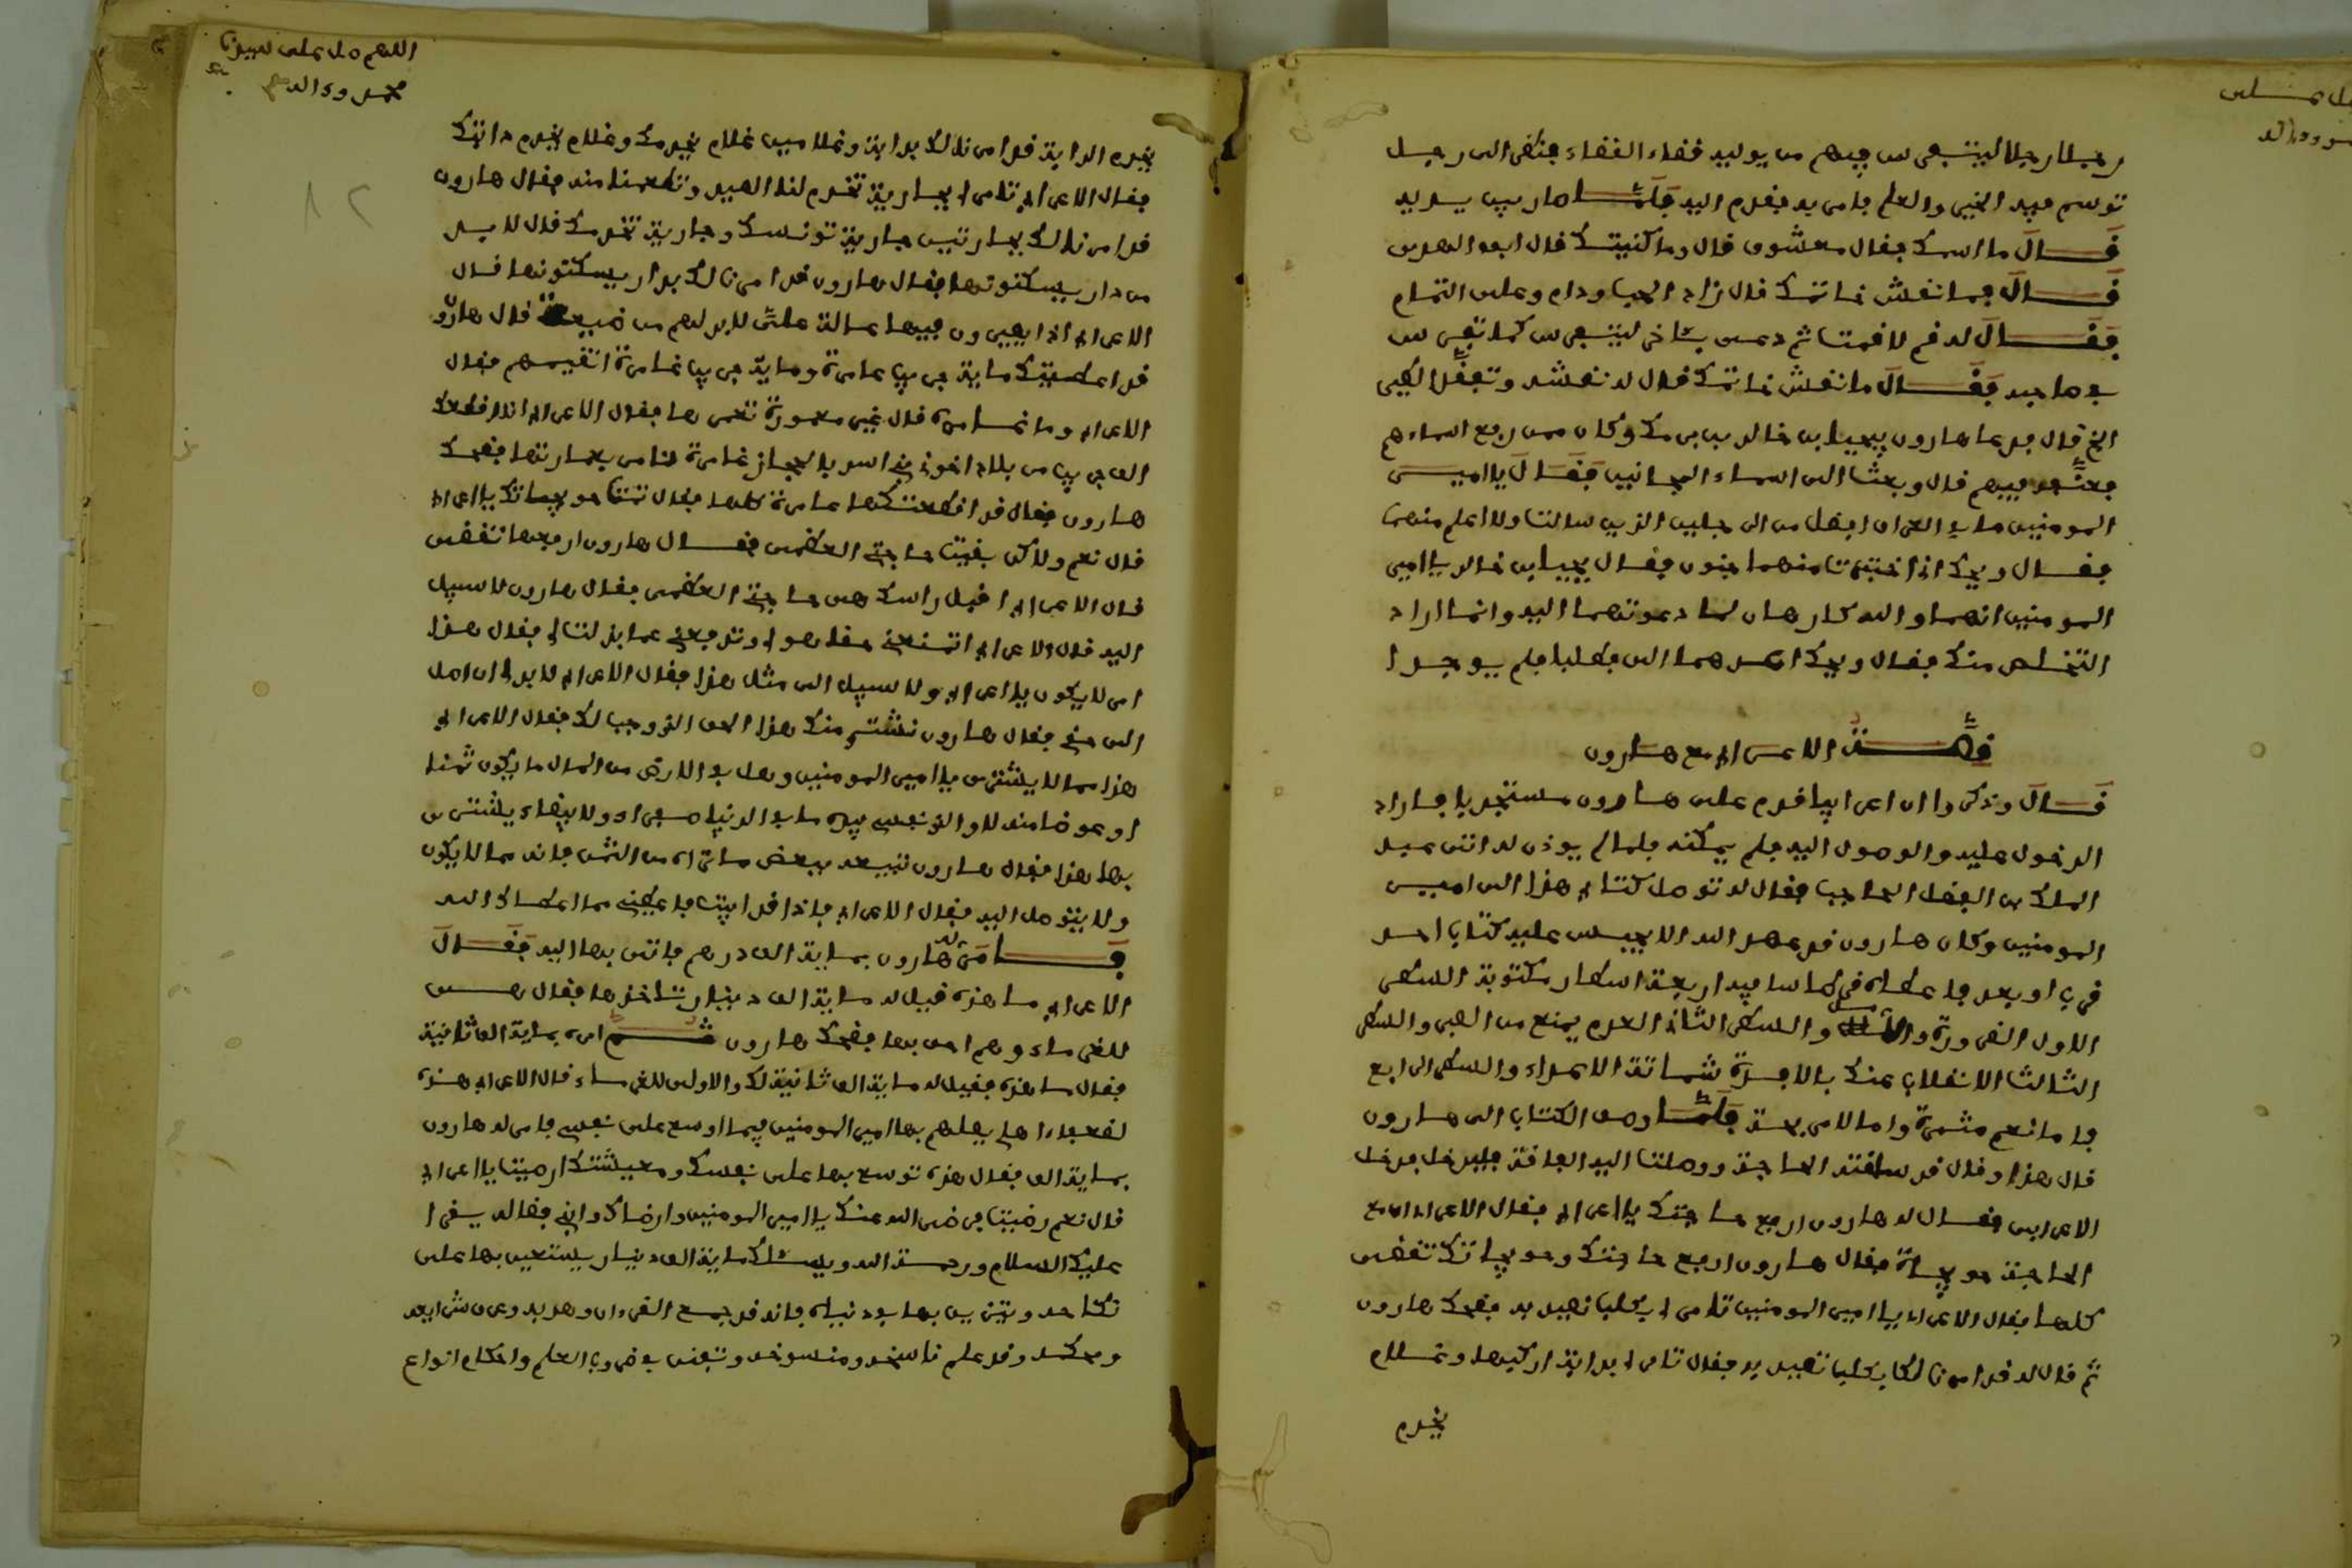 رجلا رجلا ليتبعرس فيهم من يوليه قضاء القضاء فنظر الى رجل
توسم فيه الخير والعلم فامر به فقدم اليه فلما صار بين يديه
قال ما اسمك فقال معشوق قال وما كنيتك فقال ابو الهدى
قال فما نقش خاتمك قال زاد الحب ودام وعلى التمام
فقال له قم لا قمت ثم دعى بآخر ليتفرس كما تفرس
في صاحبه فقال ما نقش خاتمك فقال له نقشه وتفقد الطير
قال فدعا هارون بيحيى بن خالد بن برمك وكان ممن رفع اسماءهم
فعنفه فيهم قال وبعثت الى اسماء المجانين فقال يا امير
المومنين ما في العراق افضل من الرجلين الذين سالت ولا اعلم منهما
فقال ويحك اني اختبرت منهما جنون فقال يحيى بن خالد يا امير
المومنين انهما والله كارهان لما دعوتهما اليه وانما اراد
التخلص منك فقال ويحك اطلبهما الى فطلبا فلم يوجدا
قصة الاعرابي مع هارون
قال وذكروا ان اعرابيا قدم على هارون مستجديا فاراد
الدخول عليه والوصول اليه فلم يمكنه فلما لم يوذن له اتى عبد
الملك بن الفضل الحاجب فقال له توصل كتابي هذا الى امير
المومنين وكان هارون قد عهد الله الا يحبس عليه كتاب احد
قرب او بعد فاعطاه قرطاسا فيه اربعة اسطار مكتوبة السطر
الاول الضرورة والامل والسطر الثاني العدم يمنع من الصبر والسطر
الثالث الانقلاب عنك بلا فائدة شماتة الاعداء والسطر الرابع
فاما نعم مثمرة واما لا مريحة فلما وصل الكتاب الى هارون
قال هذا رجل قد ساقته الحاجة ووصلت اليه الفاقة فليدخل فدخل
الاعرابي فقال له هارون ارفع حاجتك يا اعرابي فقال الاعرابي ان مع
الحاجة حويجات فقال هارون ارفع حاجتك وحويجاتك تقضى
كلها فقال الاعرابي يا امير المومنين تامر لي بكلب نصيد به فضحك هارون
ثم قال له قد امرنا لك بكلب تصيد به فقال تامر لي بدابة اركبها وغلام
يخدم
اللهم صل على سيدنا
محمد وءاله
يخدم الدابة قد امرنا لك بدابة وغلامين غلام يخدمك وغلام يخدم دابتك
فقال الاعرابي تامر لي بجارية تخدم لنا الصيد وتطعمنا منه فقال هارون
قد امرنا لك بجاريتين جارية تونسك وجارية تخدمك قال لا بد
من دار يسكنونها فقال هارون قد امرنا لك بدار يسكنونها قال
الاعرابي اذا يصيرون فيها عالة علي لا بد لهم من ضيعة قال هارون
قد اعطيتك ماية جريب عامرة وماية جريب غامرة اتقيمهم فقال
الاعرابي وما غامرة قال غير معمورة تعمرها فقال الاعرابي انا اقطعك
الف جريب من بلاد اخوالي بني اسد بالحجاز غامرة لنامر بعمارتها فضحك
هارون فقال قد اقطعتكها عامرة كلها فقال تمت حويجاتك يا اعرابي
قال نعم ولاكن بقيت حاجتي العظمى فقال هارون ارفعها تقضى
قال الاعرابي اقبل راسك هي حاجتي العظمى فقال هارون لا سبيل
اليه قال الاعرابي اتمنعني حقا هو لي وتدفعني عما بذلت لي فقال هذا
امر لا يكون يا اعرابي ولا سبيل الى مثل هذا فقال الاعرابي لا بد لي ان اصل
الى حقي فقال هارون نشتري منك هذا الحق الذي وجب لك فقال الاعرابي
هذا مما لا يشترى يا امير المومنين وهل في الارض من المال ما يكون ثمنا
او عوضا منه لا والذي نفسي بيده ما في الدنيا صفراء ولا بيضاء يشترى
بها هذا فقال هارون تبيعه ببعض ما تراه من الثمن فانه مما لا يكون
ولا يتوصل اليه فقال الاعرابي فاذا قد ابيت فاعطني مما اعطاك الله
فامر له هارون بماية الف درهم فاتى بها اليه فقال
الاعرابي ما هذه قيل له ماية الف دينار تاخذها فقال هي
للغرماء وهم احق بها فضحك هارون ثم امر بماية الف ثانية
فقال ما هذه فقيل له ماية الف ثانية لك والاولى للغرماء قال الاعرابي هذه
لضعفاء اهلي يصلهم بها امير المومنين فبما اوسع على نفسي فامر له هارون
بماية الف فقال هذه توسع بها على نفسك ومعيشتك ارضيت يا اعرابي
قال نعم رضيت فرضى الله عنك يا امير المومنين وارضاك وابي فقال له يقرا
عليك السلام ورحمة الله ويسئلك ماية الف دينار يستعين بها على
نكاحه ويتزين بها في دنياه فانه قد جمع القرءان وهو به وعرف شرايعه
وحكمه وقد علم ناسخه ومنسوخه وتفنن في ضروب العلم واحكام انواع